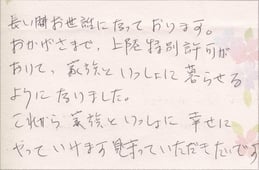 長い間お世話になっております。
おかげさまで、上陸特別許可が
おりて、家族といっしょに暮らせる
ようになりました。
これから家族といっしょに幸せに
やっていけます 見守っていただきたいです